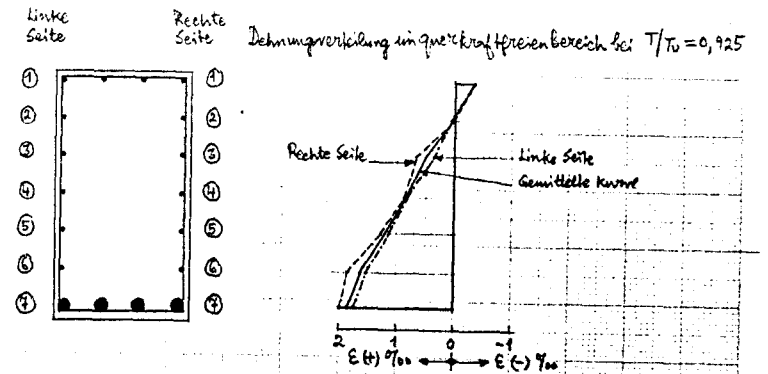 Linke
Seite
Rechte
Seite
Dehnungverteilung im querkraftfreien bereich bei T/Tu = 0,925
① ①
② ②
③ ③
④ ④
⑤ ⑤
⑥ ⑥
⑦ ⑦
Rechte Seite
Linke Seite
Gemittelte Kurve
2 1 0 -1
ε (+) ‰ ε (-) ‰